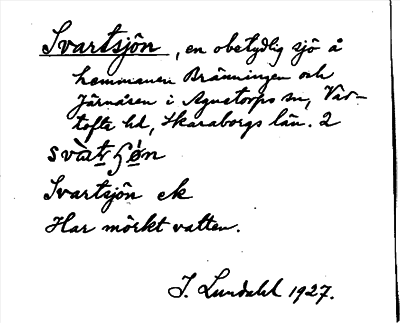 Svartsjön, en obetydlig sjö å
hemmanen Bränningen och
Järnåsen i Agnetorps sn, Vär-
tofta hd, Skaraborgs län. 2
Svartsjön ek
Har mörkt vatten.
J. Lundahl 1927.